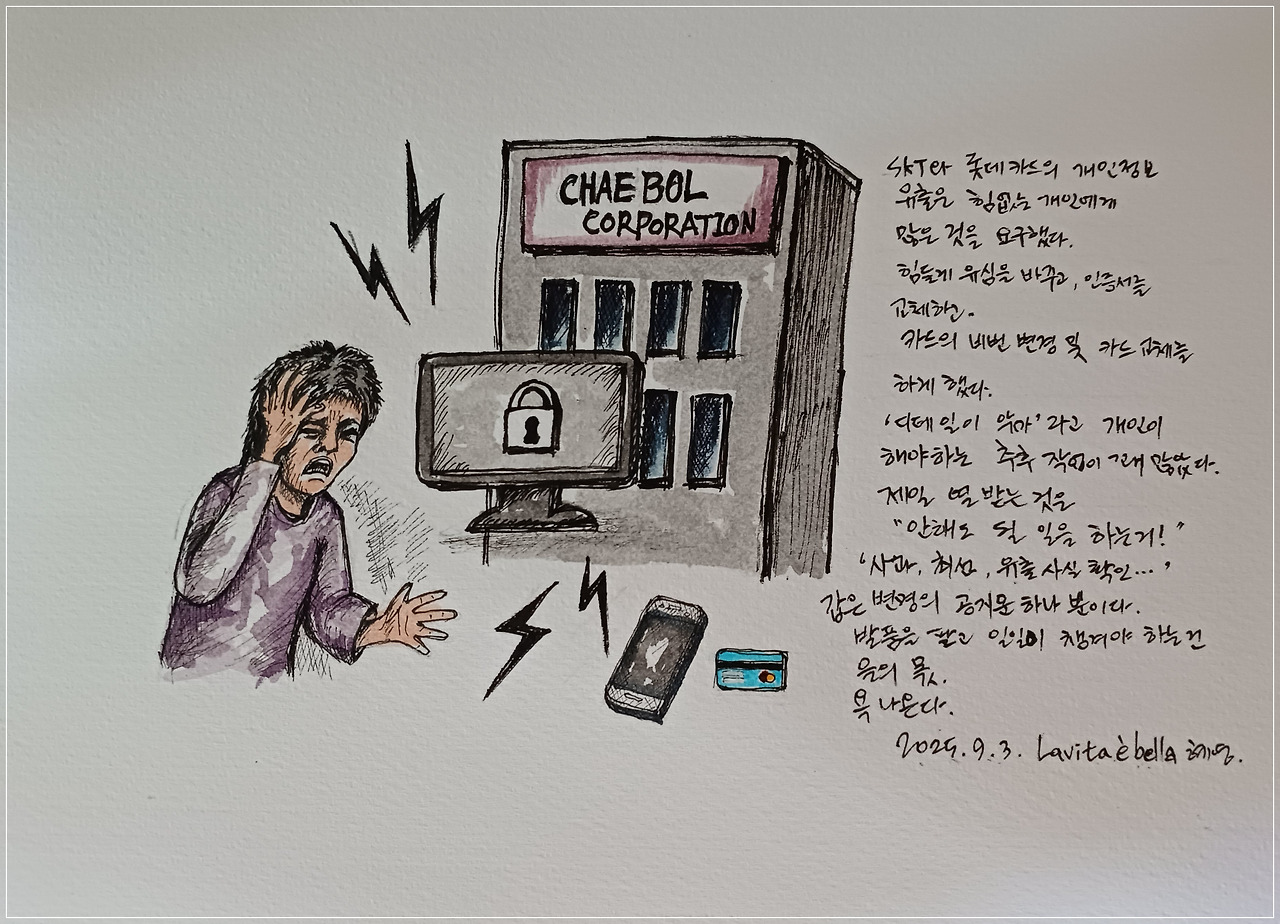 CHAEBOL
CORPORATION
SKT와 롯데카드의 개인정보
유출은 힘없는 개인에게
많은 것을 요구했다.
힘들게 유심을 바꾸고, 인증서를
교체하고.
카드의 비번 변경 및 카드 교체를
하게 했다.
라고 개인이
해야하는 추후 작업이 꽤 많았다.
제일 열 받는 것은
"안해도 될 일을 하는거!"
'사과, 최선, 유출 사실 확인...'
같은 변명의 공지문 하나 뿐이다.
발품을 팔고 일일이 챙겨야 하는건
을의 몫.
욕 나온다.
2025. 9. 3. La vita è bella 혜영.